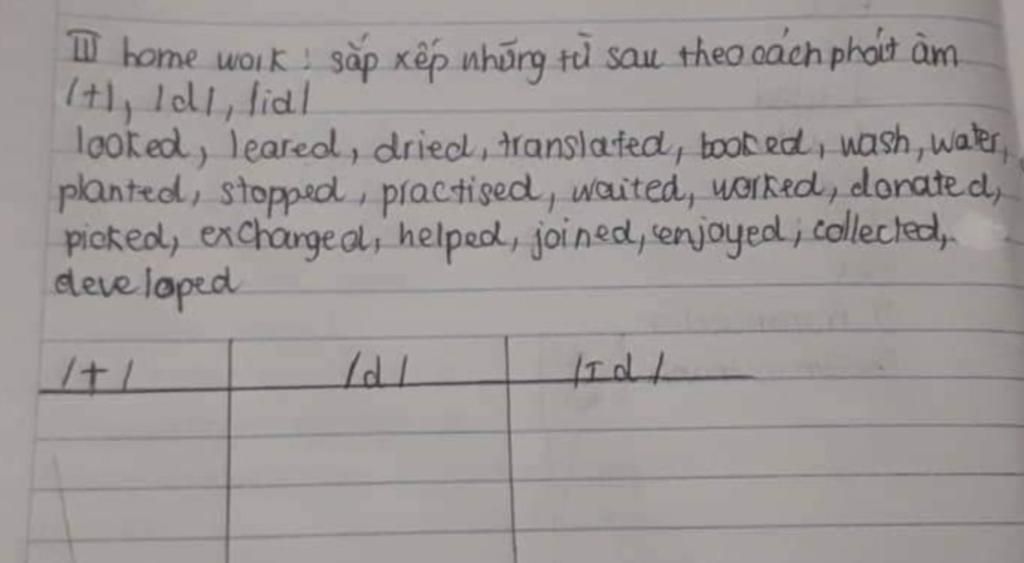 III home work : sắp xếp những từ sau theo cách phát âm
/t/, /d/, /id/
looked, leared, dried, translated, booked, wash, water,
planted, stopped, practised, waited, worked, donated,
picked, exchanged, helped, joined, enjoyed, collected,
developed
/t/ /d/ /ɪd/